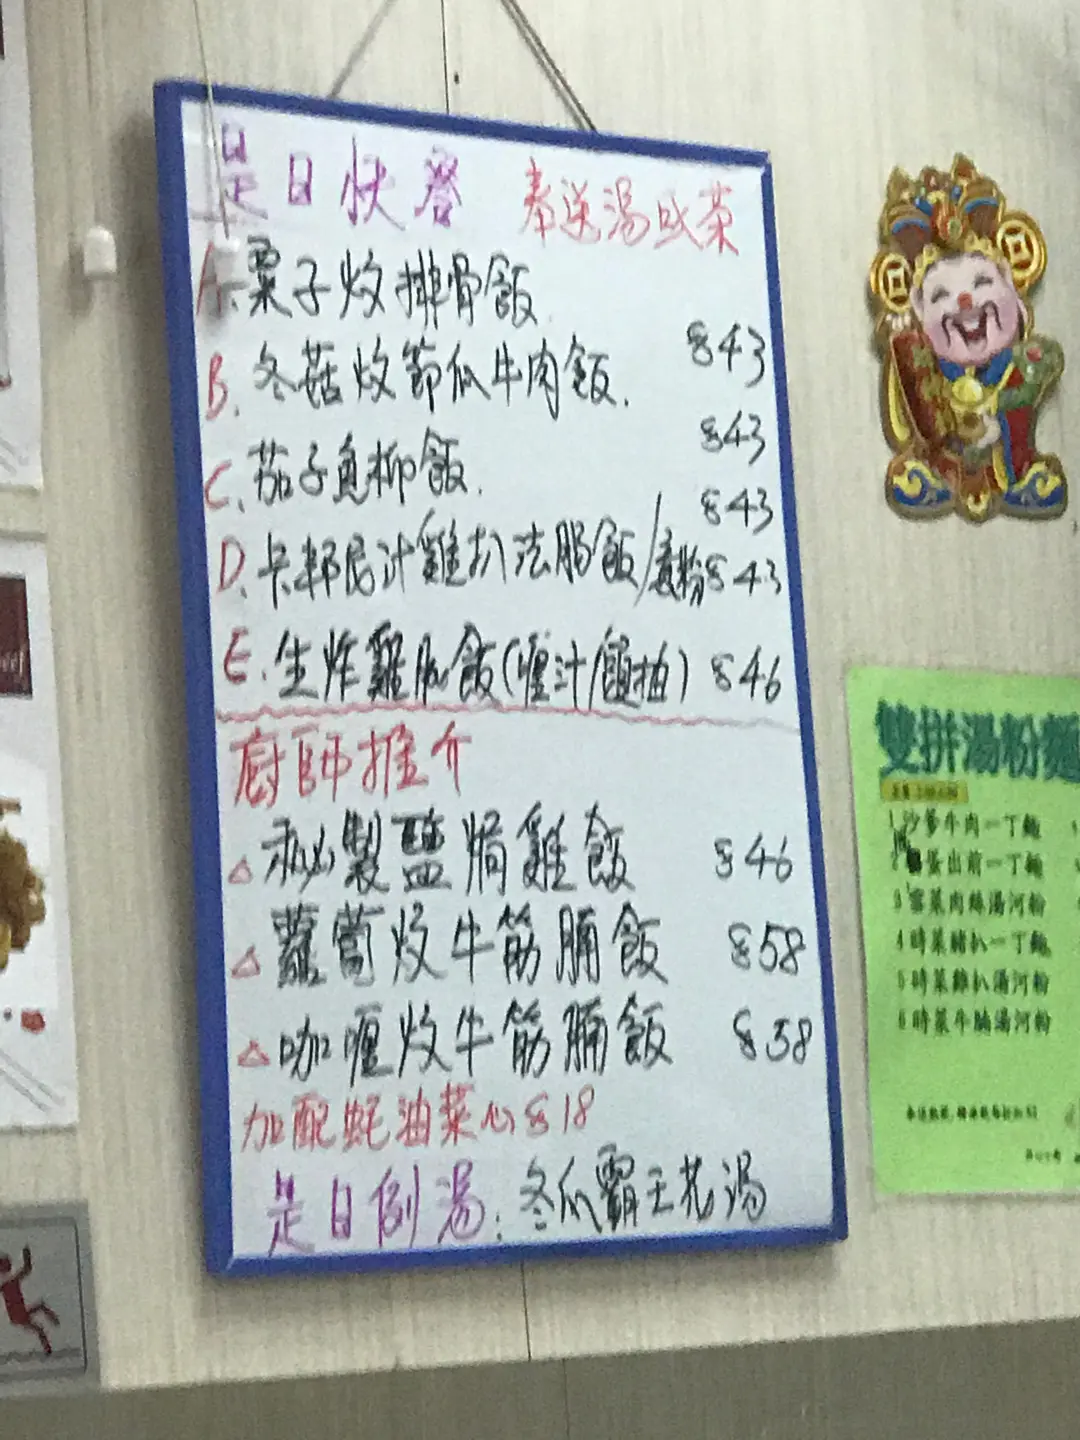 是日快餐 奉送湯或茶
A. 栗子炆排骨飯 $43
B. 冬菇炆節瓜牛肉飯. $43
C. 茄子魚柳飯. $43
D. 卡邦尼汁雞扒法腸飯/意粉 $43
E. 生炸雞髀飯(喱汁/頭抽) $46
廚師推介
△ 秘製鹽焗雞飯 $46
△ 蘿蔔炆牛筋腩飯 $58
△ 咖喱炆牛筋腩飯 $58
加配蚝油菜心 $18
是日例湯: 冬瓜霸王花湯
雙拼湯粉麵
1 沙爹牛肉一丁麵
蛋出前一丁麵
3 雪菜肉絲湯河粉
4 時菜豬扒一丁麵
5 時菜雞扒湯河粉
6 時菜牛腩湯河粉